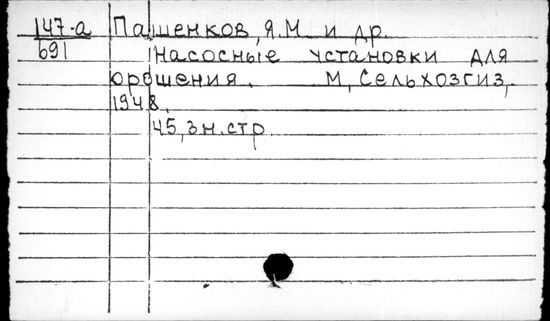 147-а Пашенков, Я.М. и др.
691 Насосные установки для
орошения. М, Сельхозгиз,
1948.
45, зн.стр.